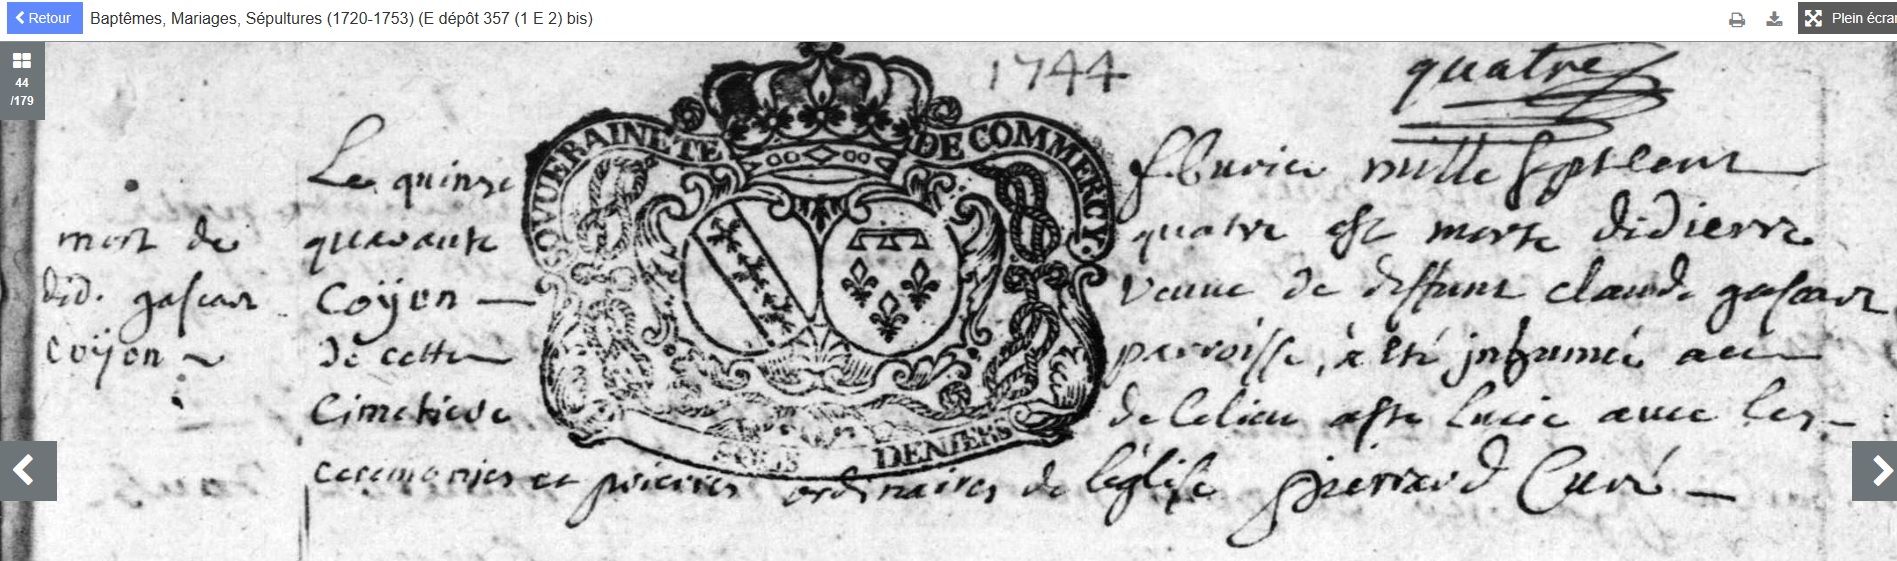 Retour
Baptêmes, Mariages, Sépultures (1720-1753) (E dépôt 357 (1 E 2) bis)
Plein écran
44
/179
1744
quatre
SOUVERAINETE DE COMMERCY
DENIERS
mort de
did. gascar
coÿen
Le quinze febvrier mille sept cent
quarante quatre est morte didierre
Coÿen veuve de deffunt claude gascar
de cette parroisse, a été inhumée au
Cimetiere de ce lieu avec les
ceremonies et prieres ordinaires de l'église pierrard Curé